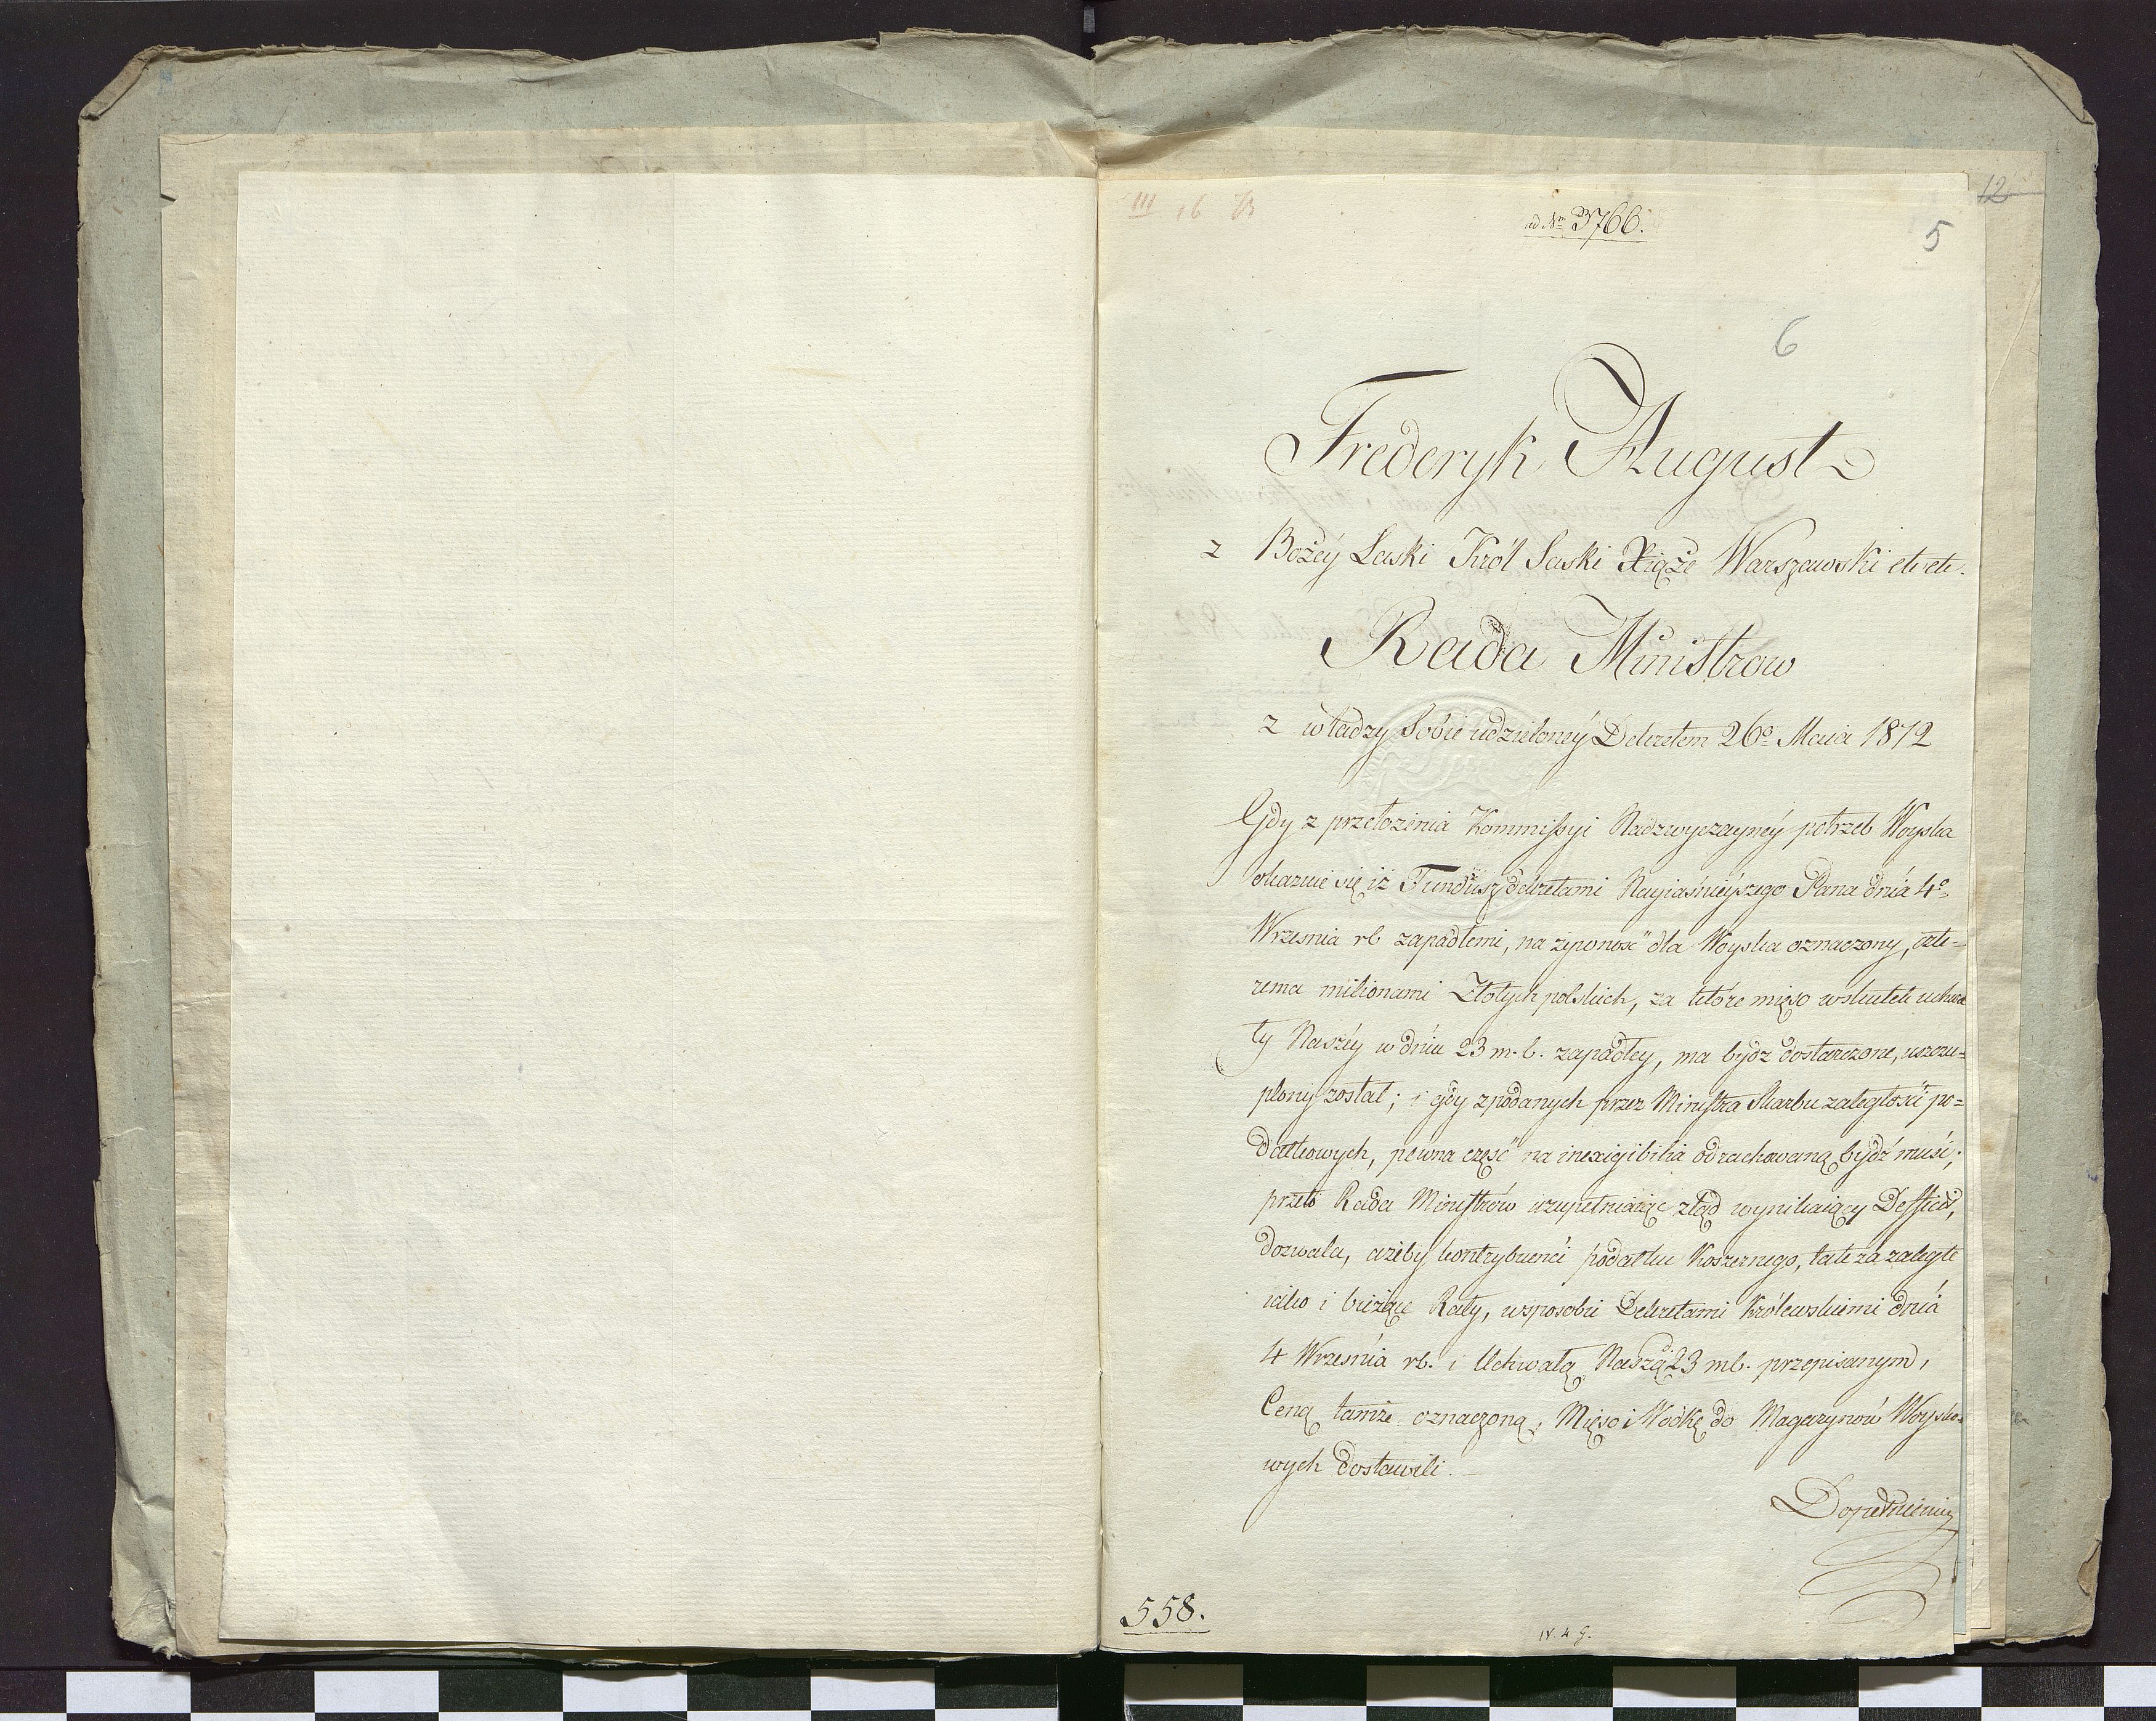 III 16 B
ad Nm 3766.
12
5
6
Frederyk August
z Bożéy Łaski Król Saski Xiąże Warszawski etc etc.
Rada Ministrow
z władzy Sobie udzieloney Dekretem 26o Maia 1812
Gdy z przełożenia Kommissyi Nadzwyczayney potrzeb Woyska
okazuie się iż Fundusz dekretami Nayiaśnieyszego Pana dnia 4o
Września rb zapadłemi, na żywność dla Woyska oznaczony, czte=
rema milionami Złotych polskich, za które mięso wskutek uchwa
ły Naszéy w dniu 23 m. b. zapadłey, ma bydź dostarczone, uszczu=
plony został; i gdy z podanych przez Ministra Skarbu zaległości po=
datkowych, pewna część na inexigibilia odrachowaną bydź musi;
przeto Rada Ministrów uzupełniaiąc ztąd wynikaiący Defficit,
dozwala, ażeby kontrybuenci podatku Koszernego, tak za zaległe
iako i bieżące Raty, wsposobie Dekretami Królewskiemi dnia
4 Września rb. i Uchwałą Naszą 23 mb. przepisanym,
Ceną tamże oznaczoną, Mięso i Wódkę do Magazynów Woysko=
wych dostawili.
Dopełnienie
558.
IV. 4 g.